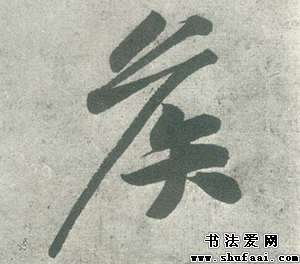 矦
书法爱网
www.shufaai.com